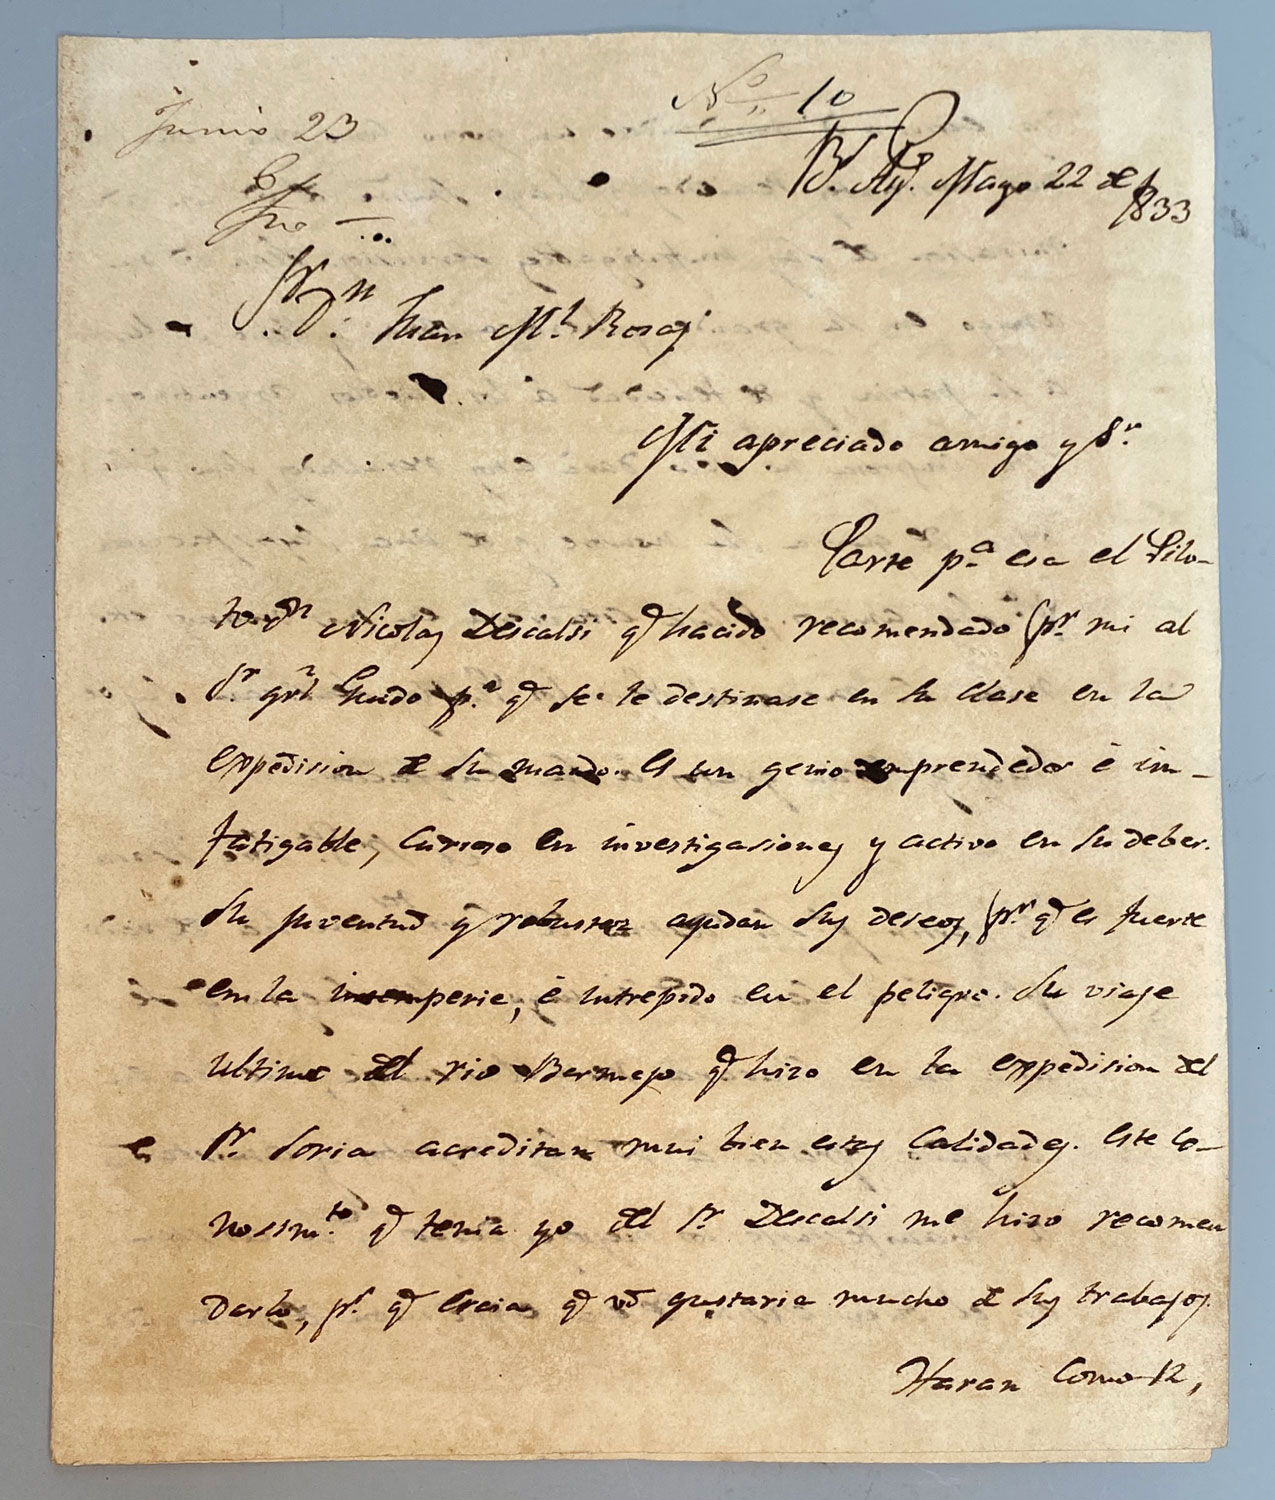 Nº 10
Junio 23
Bs. Ays. Mayo 22 de 1833
Sr. Dn. Juan Ml. Rosas
Mi apreciado amigo y Sr.
Parte pa. esa el Pilo-
to Dn Nicolas Descalsi q.e ha cido recomendado pr. mi al
Sr. gral. Guido pa. q.e se le destinase en su clase en la
expedision de su mando. Es un genio emprendedor é in-
fatigable, curioso en investigasiones y activo en su deber.
Su juventud y robustez ayudan sus deseos, pr. q.e es fuerte
en la intemperie, é intrepido en el peligro. Su viaje
ultimo del rio Bermejo q.e hizo en la expedision del
Sr. Soria acreditan mui bien estas calidades. Este co-
nosim.to q.e tenia yo del Sr. Descalsi me hizo recomen
darlo, pr. q.e creia q.e vd gustaria mucho de sus trabajos.
Haran como 12,